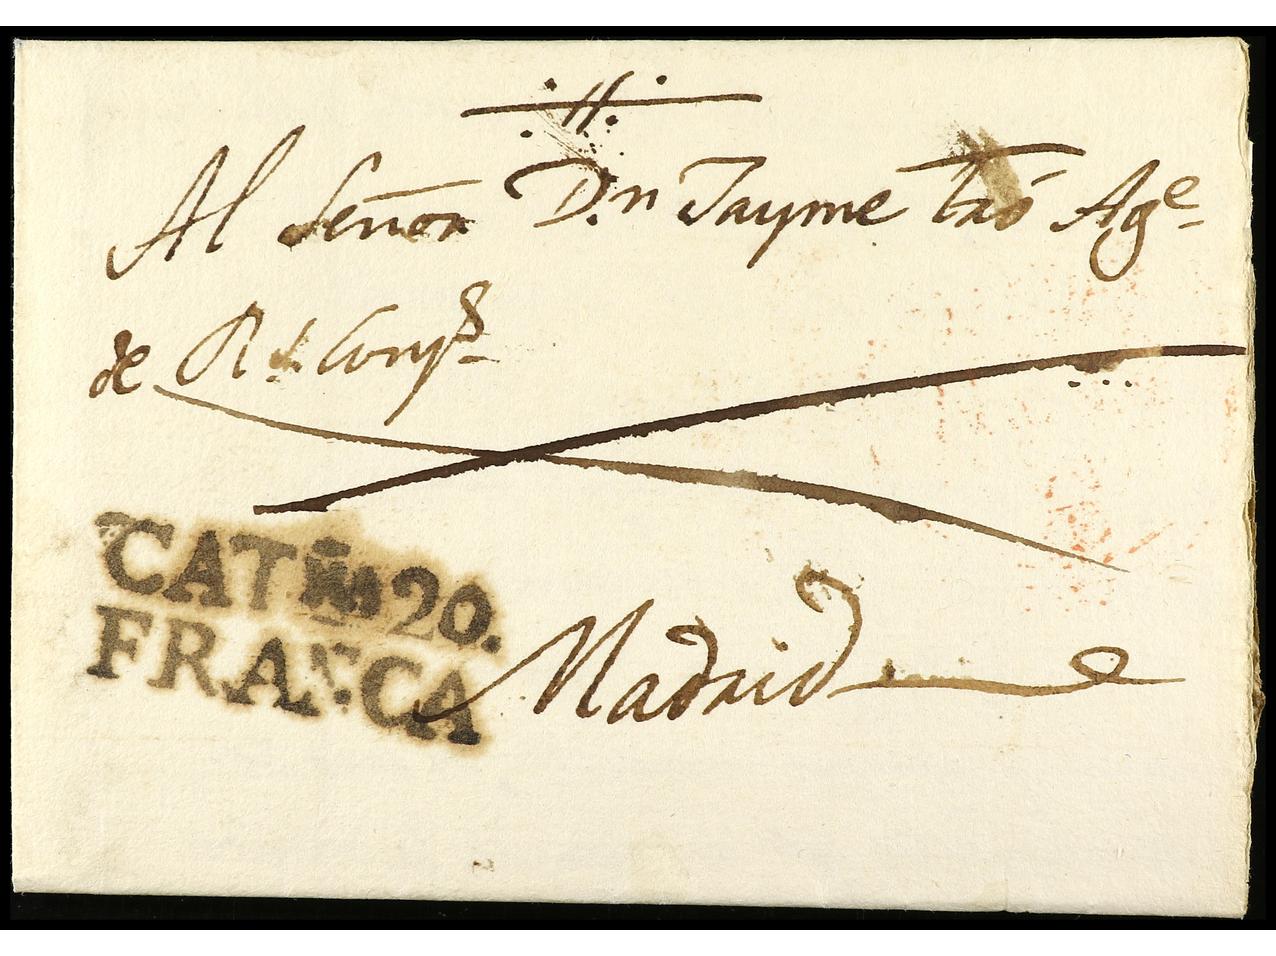 Al Señor D.n Jayme Tró Ag.e
de R.s Conys
CATÑA 20.
FRANCA
Madrid